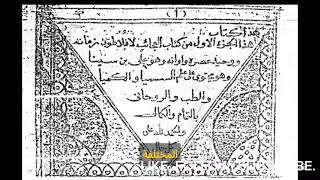 (١)
هذا كتاب
هذا الجزء الاول من كتاب العجائب لافلاطون زمانه
ووحيد عصره واوانه وهو على بن سينا
وهو يحوى على علم السيميا والكيميا
والطب والروحانى
بالتمام والكمال
والحمد لله على
المختلفة
BE.